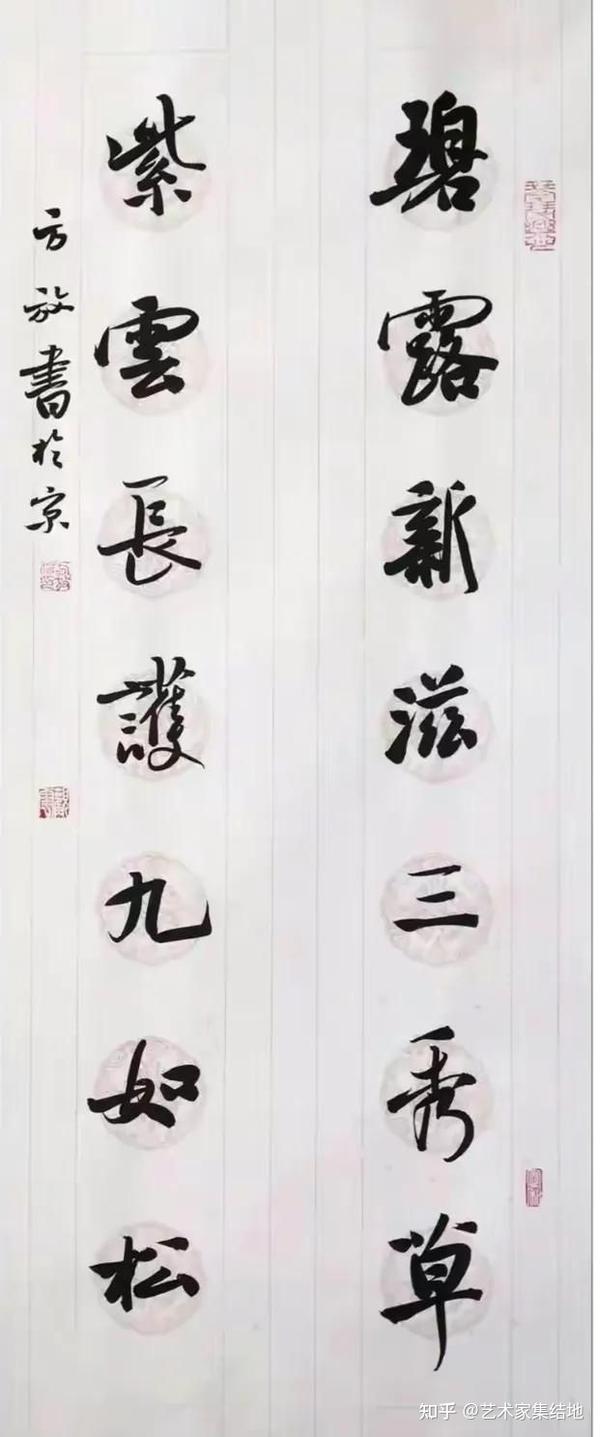 碧露新滋三秀草
紫雲長護九如松
方放書於京
知乎 @艺术家集结地